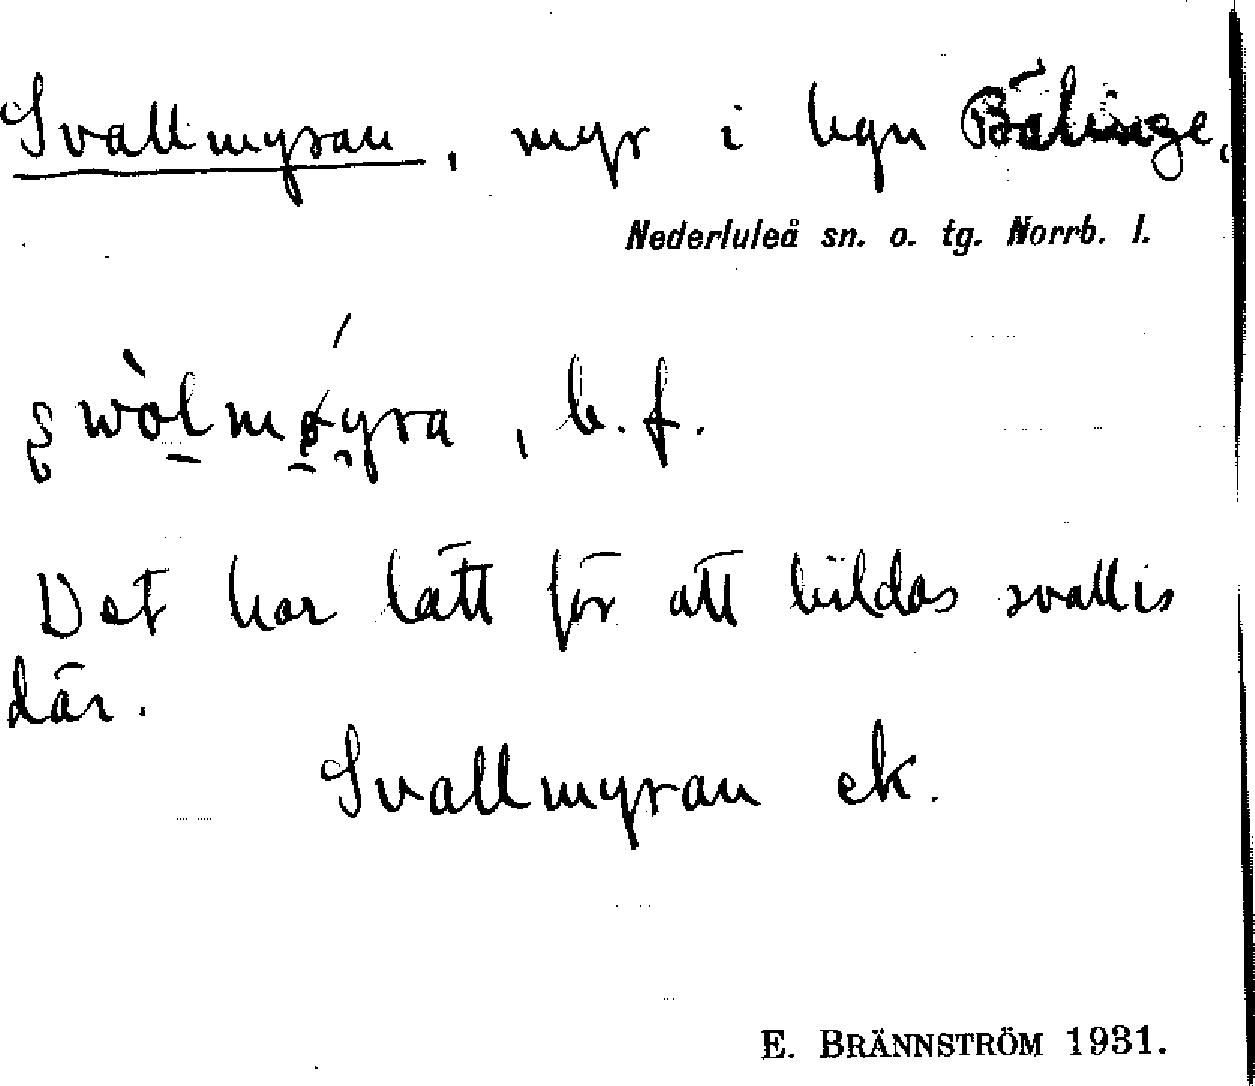 Svallmyran, myr i hgn Bälinge,
Nederluleå sn. o. tg. Norrb. l.
, b. f.
Det har lätt för att bildas svallis
där.
Svallmyran ek.
E. BRÄNNSTRÖM 1931.